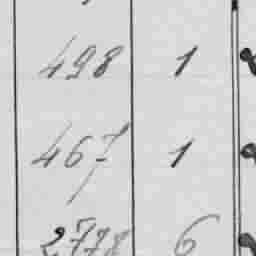 498 1
467 1
2778 6